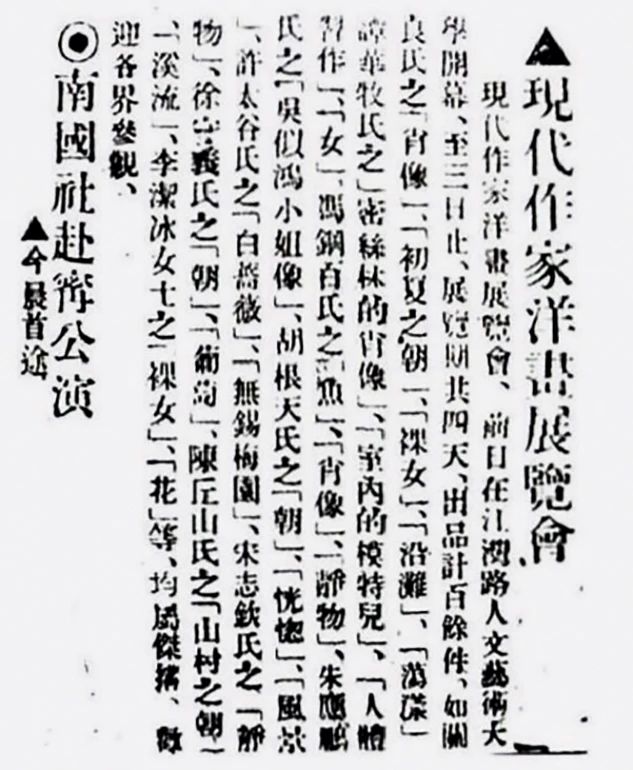 ▲現代作家洋畫展覽會
現代作家洋畫展覽會、前日在江灣路人文藝術大
學開幕、至三日止、展覽期共四天、出品計百餘件、如關
良氏之「肖像」、「初夏之朝」、「裸女」、「沿灘」、「
譚華牧氏之」密絲林的肖像」、「室內的模特兒」、「人體
習作」、「女」、馮鋼百氏之「魚」、「肖像」、「靜物」、朱應鵬
氏之「吳似鴻小姐像」、胡根天氏之「朝」、「恍惚」、「風景
」、許太谷氏之「白薔薇」、「無錫梅園」、宋志欽氏之、「靜
物」、徐守義氏之「朝」、「葡萄」、陳丘山氏之「山村之朝」
「溪流」、李潔冰女士之「裸女」、「花」等、均屬傑搆、歡
迎各界參觀、
◉南國社赴甯公演
▲今晨首途